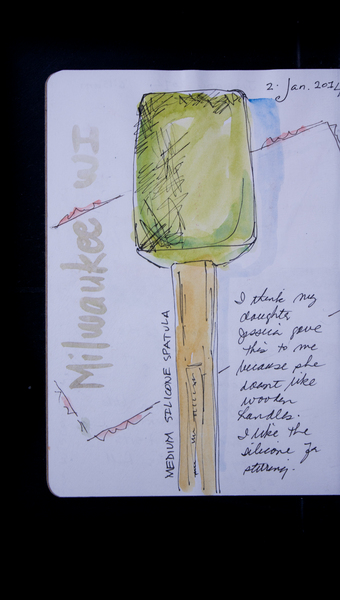 2. Jan. 2014
Milwaukee WI
MEDIUM SILICONE SPATULA
I think my
daughter
Jessica gave
this to me
because she
doesnt like
wooden
handles.
I like the
silicone for
stirring.